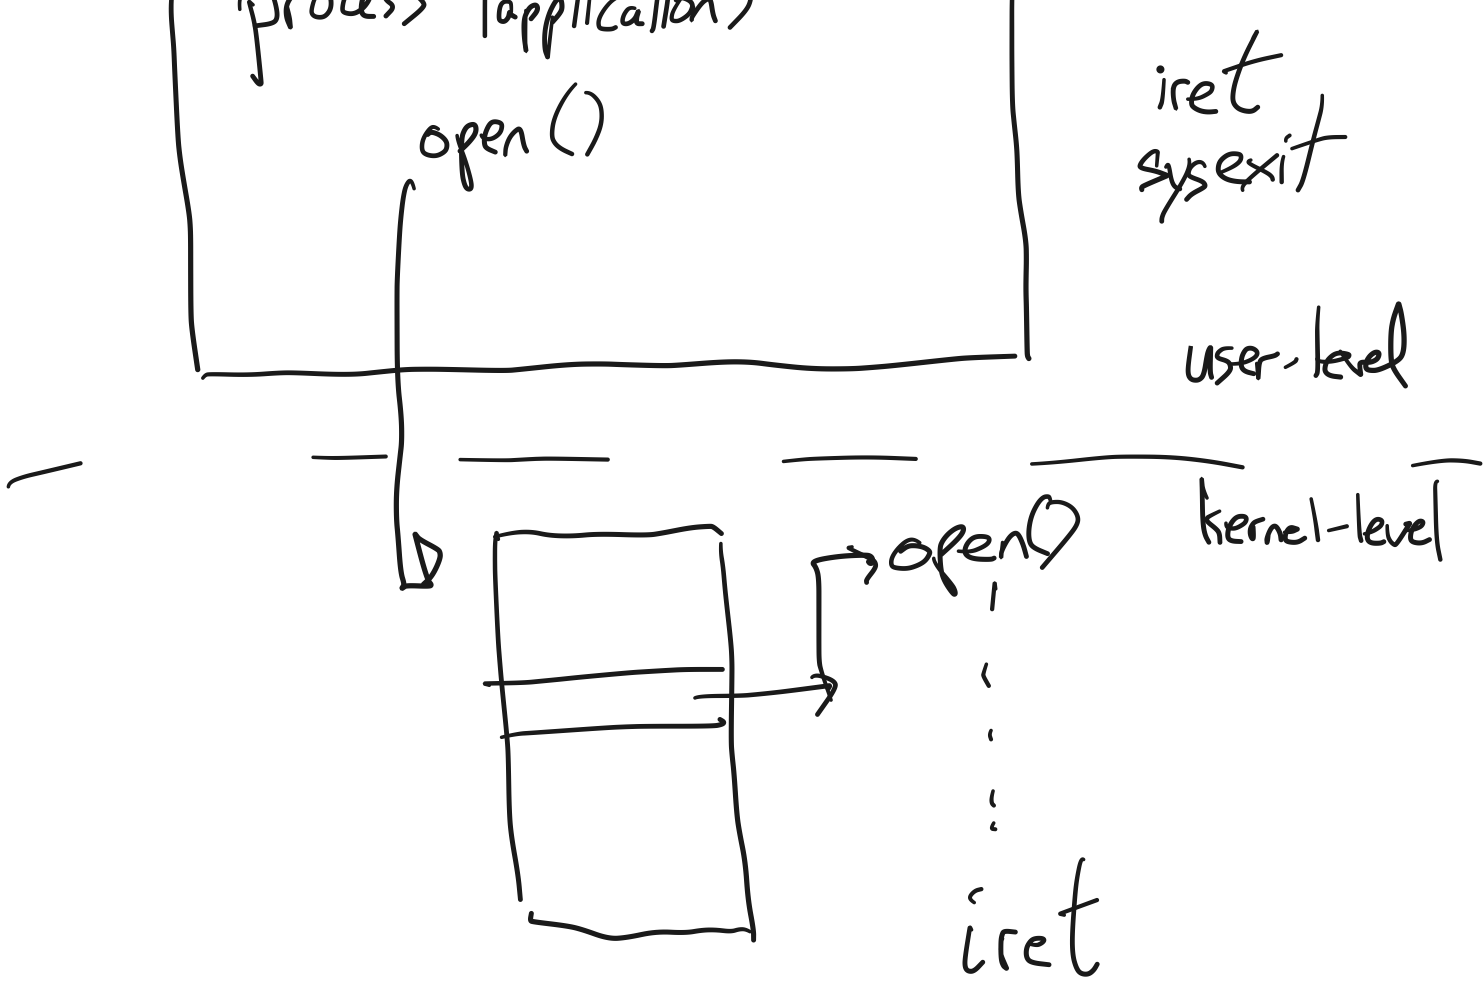 process (application)
open()
iret
sysexit
user-level
kernel-level
open()
iret